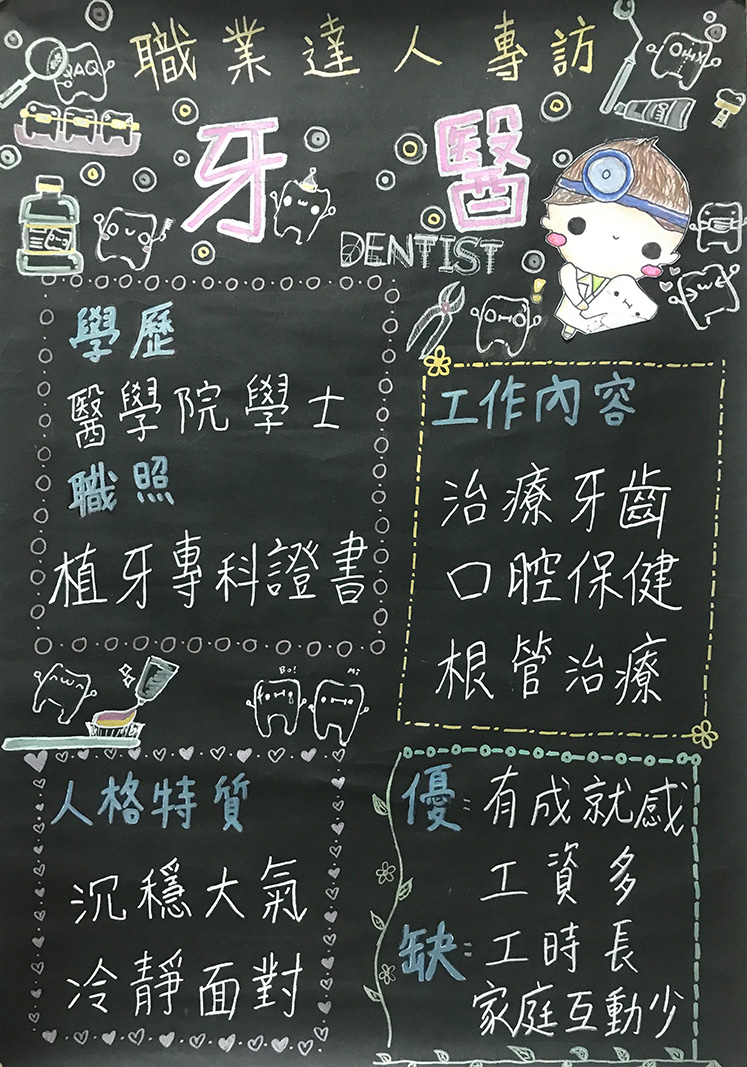 職業達人專訪
牙醫
DENTIST
學歷
醫學院學士
職照
植牙專科證書
工作內容
治療牙齒
口腔保健
根管治療
Bo!
Mi
人格特質
沉穩大氣
冷靜面對
優:有成就感
工資多
缺:工時長
家庭互動少